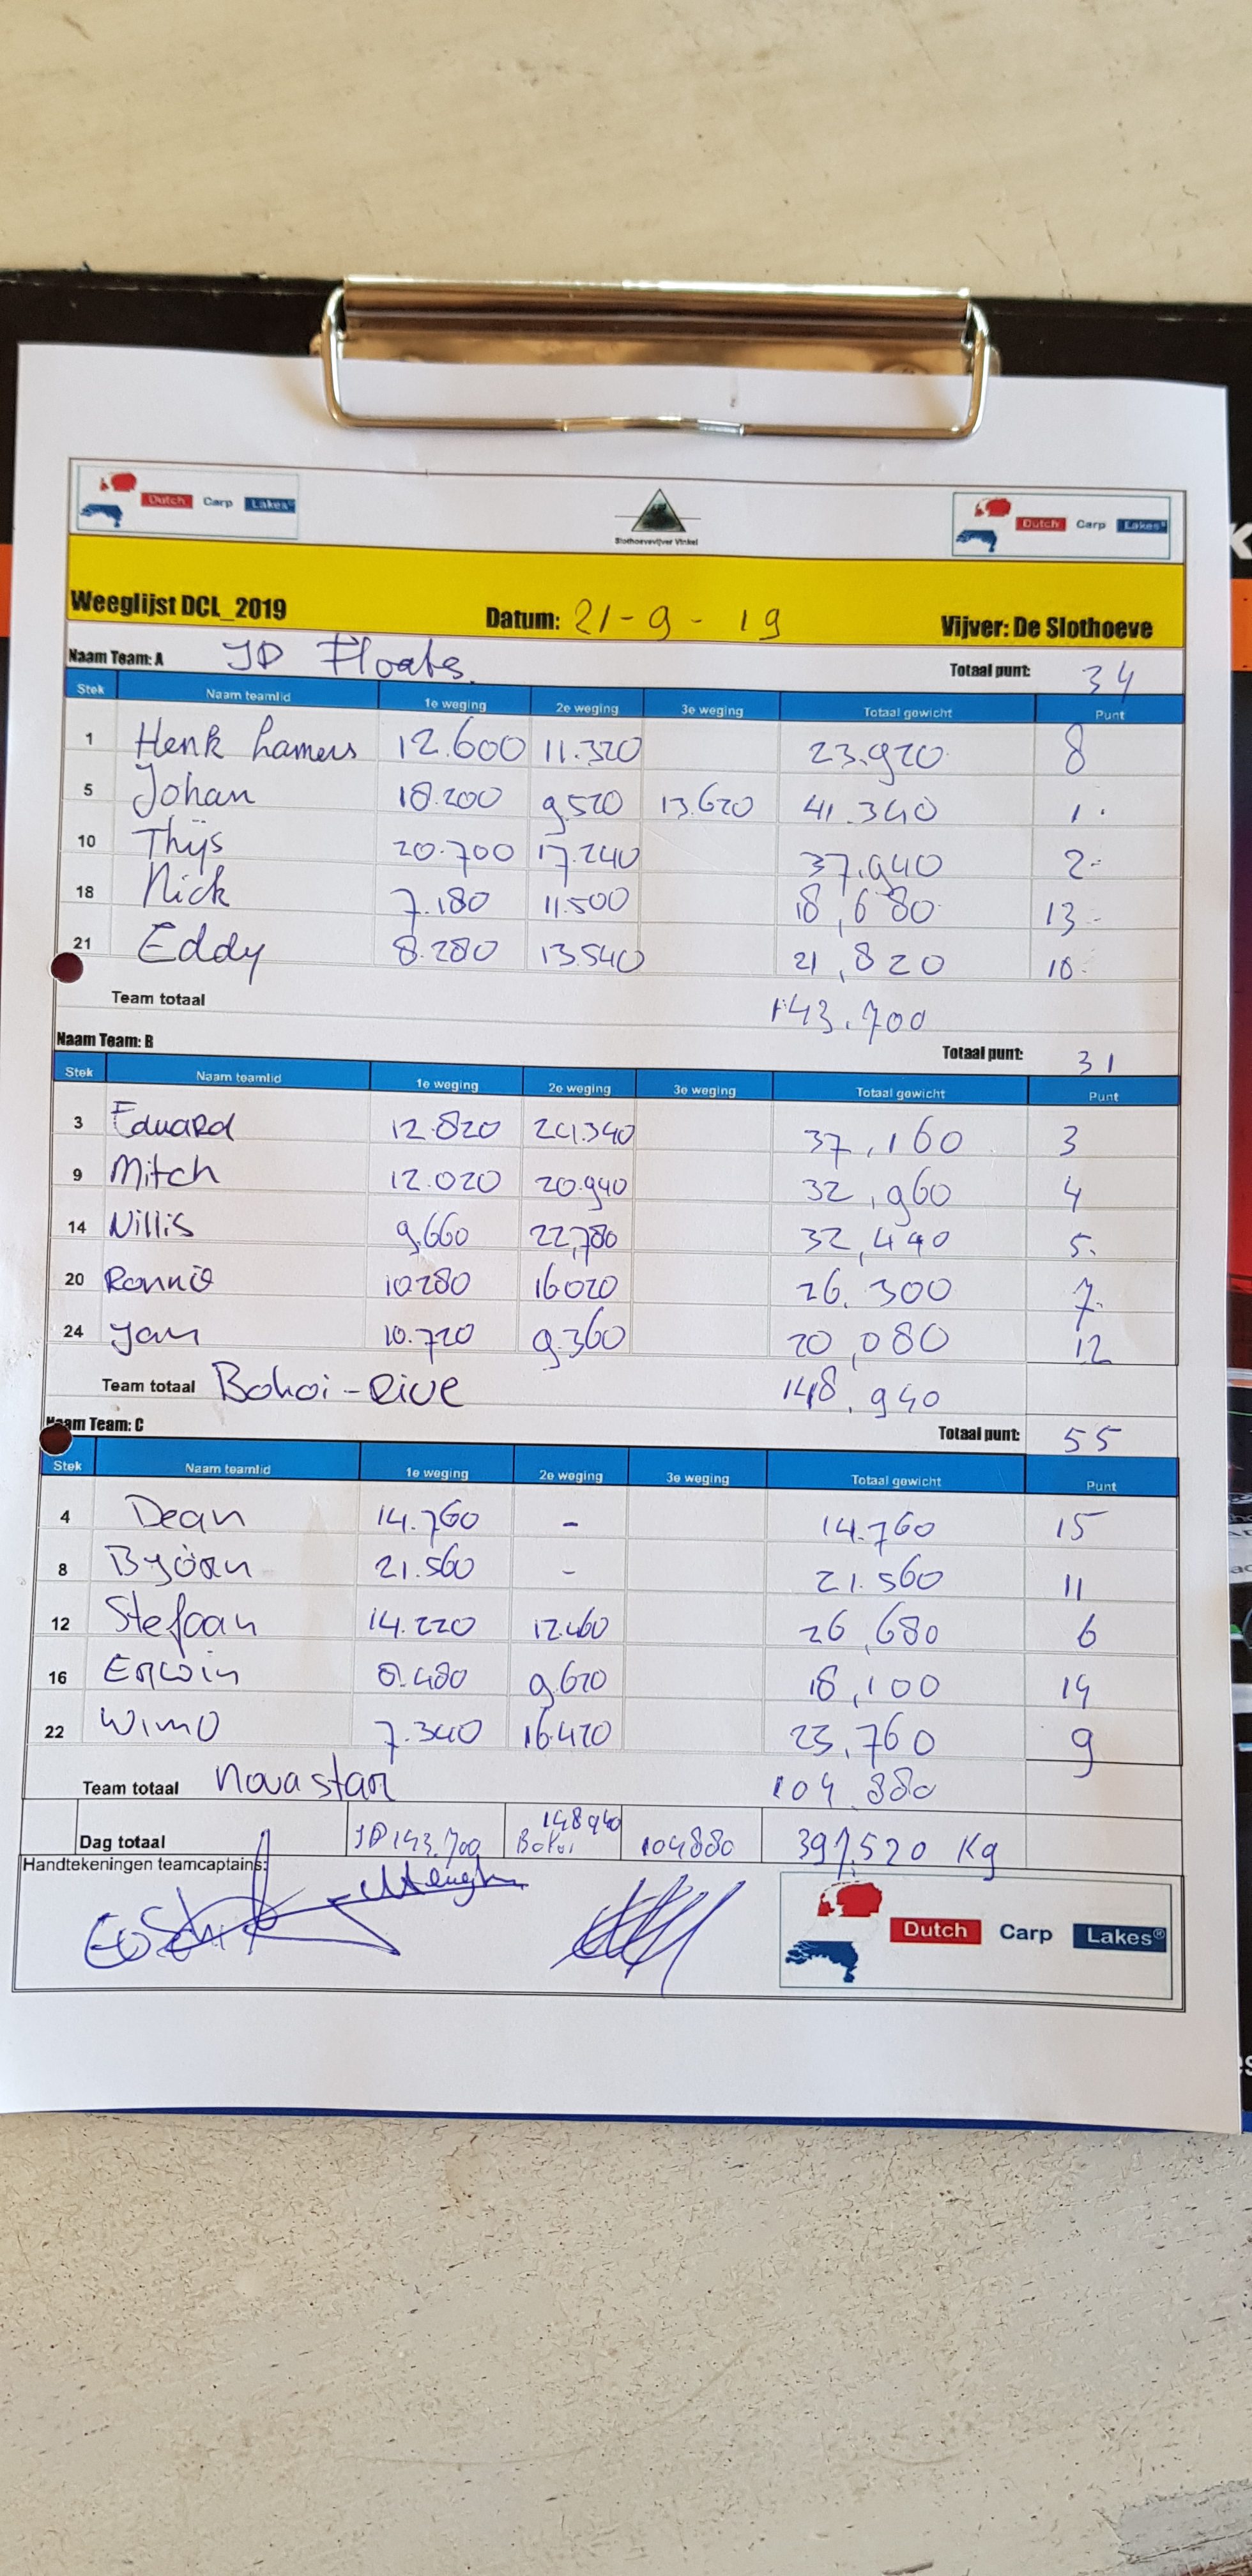 Dutch Carp Lakes®
Slothoevevijver Vinkel
Dutch Carp Lakes®
Weeglijst DCL_2019 Datum: 21-9-19 Vijver: De Slothoeve
Naam Team: A JD Floats. Totaal punt: 34
Stek Naam teamlid 1e weging 2e weging 3e weging Totaal gewicht Punt
1 Henk Lamers 12.600 11.320 23.920 8
5 Johan 18.200 9.520 13.620 41.340 1.
10 Thijs 20.700 17.240 37.940 2.
18 Nick 7.180 11.500 18,680 13
21 Eddy 8.280 13.540 21,820 10.
Team totaal 143.700
Naam Team: B Totaal punt: 31
Stek Naam teamlid 1e weging 2e weging 3e weging Totaal gewicht Punt
3 Eduard 12.820 24.340 37,160 3
9 Mitch 12.020 20.940 32,960 4
14 Willis 9.660 22,780 32,440 5.
20 Ronnie 10280 16020 26.300 7.
24 Jan 10.720 9.360 20,080 12
Team totaal Bokoi-Rive 148.940
Naam Team: C Totaal punt: 55
Stek Naam teamlid 1e weging 2e weging 3e weging Totaal gewicht Punt
4 Dean 14.760 - 14.760 15
8 Byörn 21.560 - 21.560 11
12 Stefaan 14.220 12.460 26,680 6
16 Erwin 8.480 9.620 18,100 14
22 Wimo 7.340 16.420 23,760 9
Team totaal Novastar 104.880
Dag totaal JD 143.700 148940 Bokoi 104880 397,520 Kg
Handtekeningen teamcaptains:
Dutch Carp Lakes®